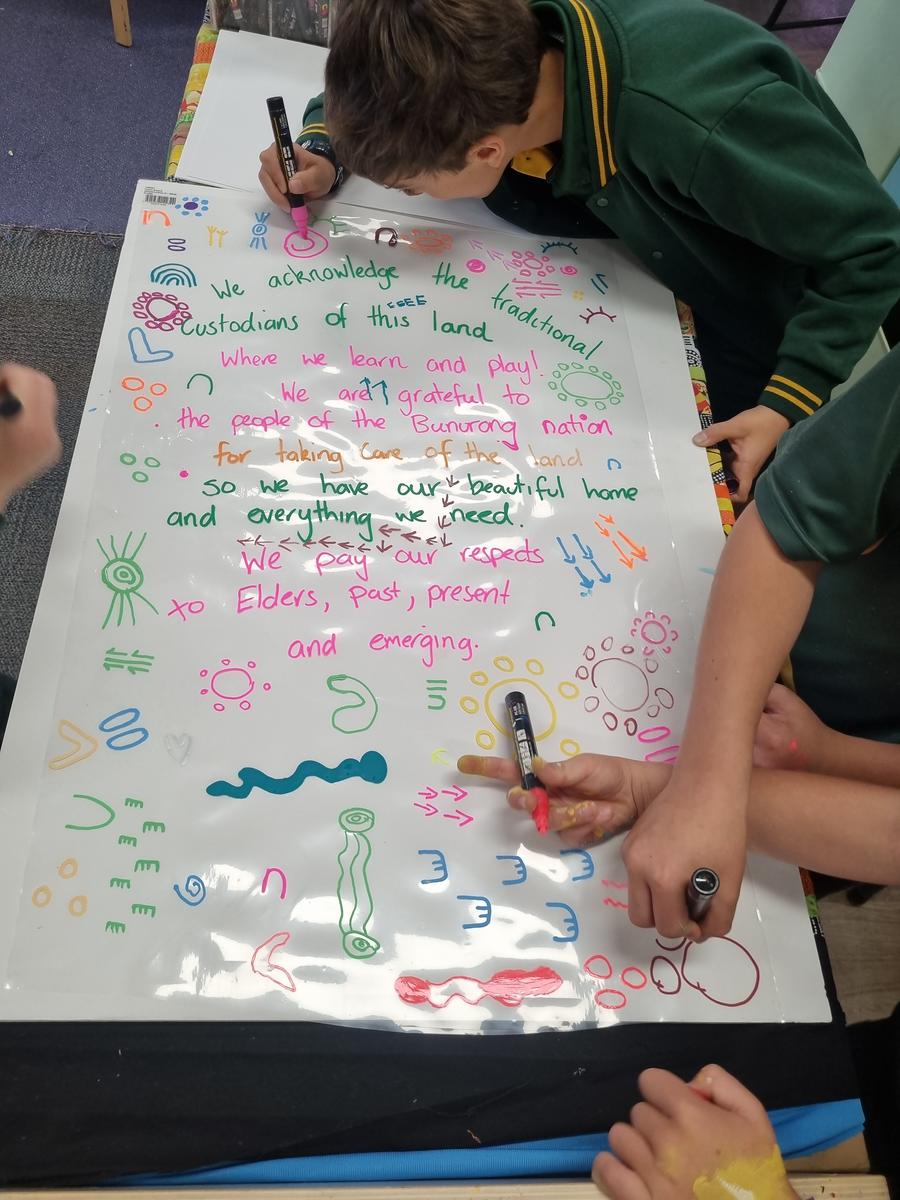 We acknowledge the tradctional
Custodians of this land
Where we learn and play!
We are grateful to
the people of the Bunurong nation
for taking Care of the land
so we have our beautiful home
and everything we need.
We pay our respects
xo Elders, past, present
and emerging.